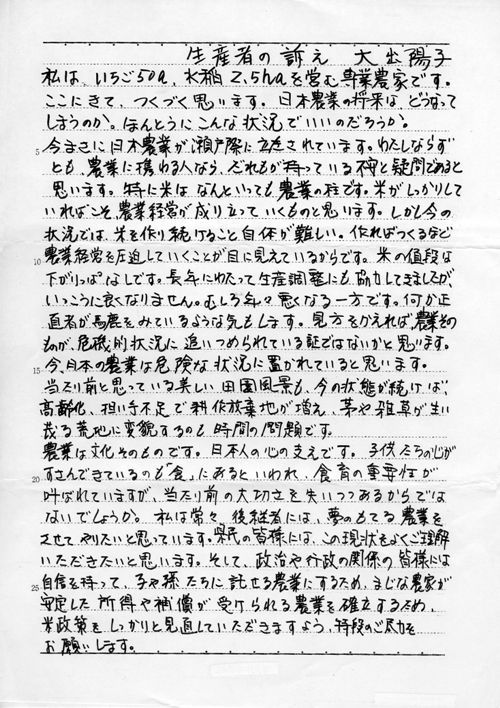 生産者の訴え 大出陽子
私は、いちご50a、水稲2.5haを営む専業農家です。
ここにきて、つくづく思います。日本農業の将来は、どうなって
しまうのか。ほんとうにこんな状況でいいのだろうか。
5 今まさに日本農業が瀬戸際に立たされています。わたしならず
とも、農業に携わる人なら、だれもが持っている不安と疑問であると
思います。特に米はなんといっても農業の柱です。米がしっかりして
いればこそ、農業経営が成り立っていくものと思います。しかし今の
状況では、米を作り続けること自体が難しい。作ればつくるなど
10 農業経営を圧迫していくことが目に見えているからです。米の値段は
下がりっぱなしです。長年にわたって生産調整にも協力してきましたが、
いっこうに良くなりません。むしろ年々悪くなる一方です。何か正
直者が馬鹿をみているような気もします。見方をかえれば農業その
ものが、危機的状況に追いつめられている証ではないかと思います。
15 今、日本の農業は危険な状況に置かれていると思います。
当たり前と思っている美しい田園風景も、今の状態が続けば、
高齢化、担い手不足で耕作放棄地が増え、茅や雑草が生い
茂る荒地に変貌するのも時間の問題です。
農業は文化そのものです。日本人の心の支えです。子供たちの心が
20 すさんできているのも「食」にあるといわれ、食育の重要性が
叫ばれていますが、当たり前の大切さを失いつつあるからでは
ないでしょうか。私は常々、後継者には、夢のもてる農業を
させてやりたいと思っています。県民の皆様には、この現状をよくご理解
いただきたいと思います。そして、政治や行政の関係の皆様には
25 自信を持って、子や孫たちに託せる農業にするため、まじめな農家が
安定した所得や補償が受けられる農業を確立するため、
米政策をしっかりと見直していただきますよう、特段のご尽力を
お願いします。